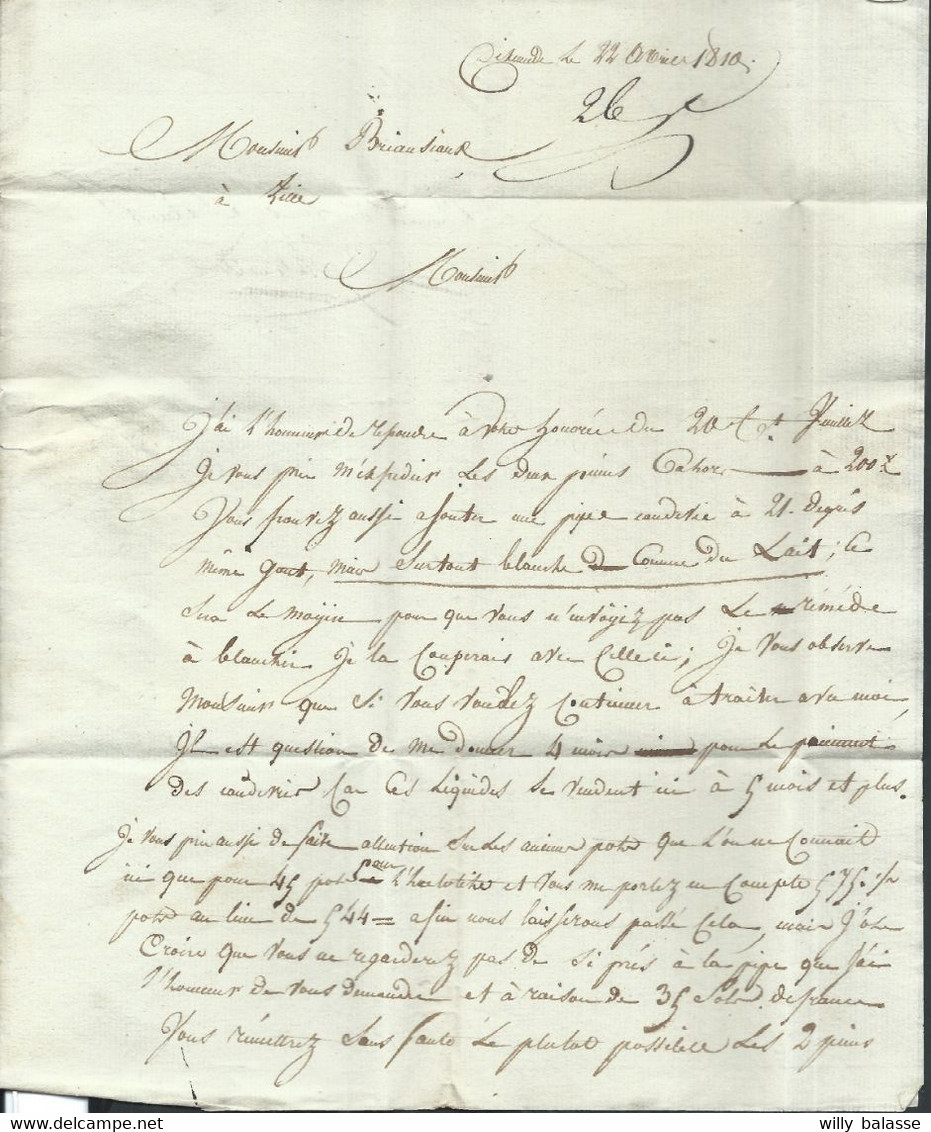 le 22 1810
26
Monsieur Briansiaux
à Lille
Monsieur
J'ai l'honneur de repondre à votre honorée du 20 Ct
Je vous prie m'expedier les deux pièces Cahors — à 200
Vous pouvez aussi ajouter une pipe eaudevie à 21. degrés
même gout, mais surtout blanche comme du Lait; ce
sera le moyen pour que vous n'envoyez pas le rémède
à blanchir je la Couperais avec Celleci; je vous observe
Monsieur que si vous voulez Continuer à traiter avec moi,
Il est question de me donner 4 mois pour le paiement
des eaudevies Car Ces Liquides se vendent ici à 5 mois et plus.
je vous prie aussi de faire attention sur les anciens pots que l'on ne Connait
ici que pour 45 pots pour l'hectolitre et vous me portez en Compte 575
pots au lieu de 544 = afin nous laisserons passé Cela, mais j'ose
Croire que vous ne regarderez pas de si près à la pipe que j'ai
l'honneur de vous demander et à raison de 35 Sols de france
Vous rémettrez sans faute le plutot possible les 2 pièces
willy balasse